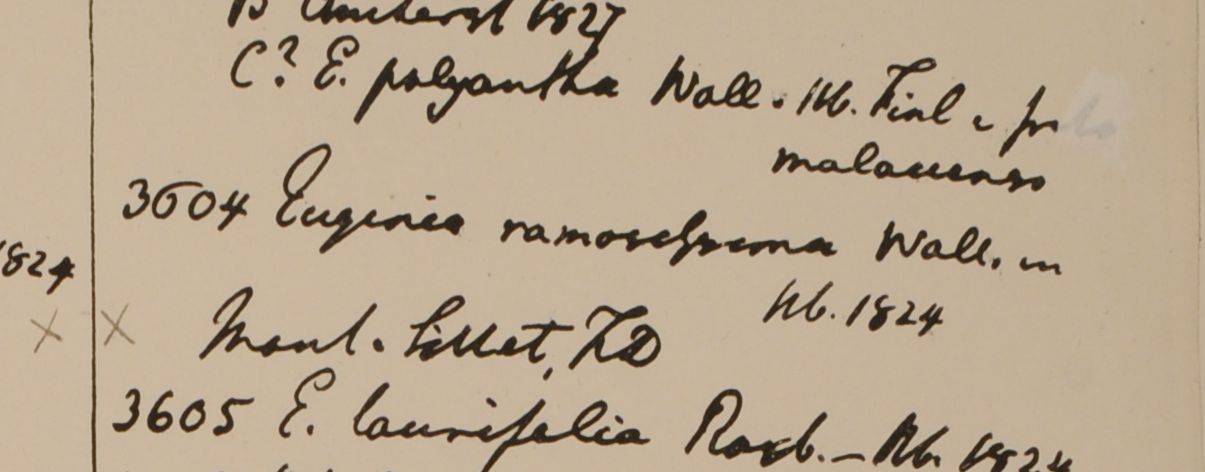 B Amherst 1827
C? E. polyantha Wall. Hb. Finl c fr
malaccense
3604 Eugenia ramosissima Wall. in
1824
Hb. 1824
x x Mont. Sillet, FD
3605 E. laurifolia Roxb. - Hb. 1824